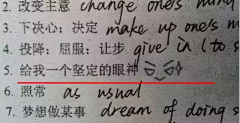 2. 改变主意 change one's mind
3. 下决心;决定 make up one's m
4. 投降;屈服;让步 give in (to s
5. 给我一个坚定的眼神
6. 照常 as usual
7. 梦想做某事 dream of doing s